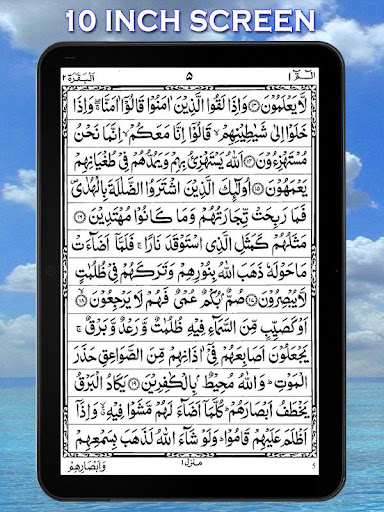 10 INCH SCREEN
الٓمّٓ ١ ۵ اَلْبَقَرَة ٢
لَّا يَعْلَمُوْنَ ﴿١٣﴾ وَاِذَا لَقُوا الَّذِيْنَ اٰمَنُوْا قَالُوْٓا اٰمَنَّا ۖۚ وَاِذَا
خَلَوْا اِلٰى شَيٰطِيْنِهِمْ ۙ قَالُوْٓا اِنَّا مَعَكُمْ ۙ اِنَّمَا نَحْنُ
مُسْتَهْزِءُوْنَ ﴿١٤﴾ اَللّٰهُ يَسْتَهْزِئُ بِهِمْ وَيَمُدُّهُمْ فِيْ طُغْيَانِهِمْ
يَعْمَهُوْنَ ﴿١٥﴾ اُولٰٓئِكَ الَّذِيْنَ اشْتَرَوُا الضَّلٰلَةَ بِالْهُدٰى ۪
فَمَا رَبِحَتْ تِّجَارَتُهُمْ وَمَا كَانُوْا مُهْتَدِيْنَ ﴿١٦﴾
مَثَلُهُمْ كَمَثَلِ الَّذِى اسْتَوْقَدَ نَارًا ۚ فَلَمَّآ اَضَآءَتْ
مَا حَوْلَهٗ ذَهَبَ اللّٰهُ بِنُوْرِهِمْ وَتَرَكَهُمْ فِيْ ظُلُمٰتٍ
لَّا يُبْصِرُوْنَ ﴿١٧﴾ صُمٌّۢ بُكْمٌ عُمْيٌ فَهُمْ لَا يَرْجِعُوْنَ ﴿١٨﴾
اَوْ كَصَيِّبٍ مِّنَ السَّمَآءِ فِيْهِ ظُلُمٰتٌ وَّرَعْدٌ وَّبَرْقٌ ۚ
يَجْعَلُوْنَ اَصَابِعَهُمْ فِيْٓ اٰذَانِهِمْ مِّنَ الصَّوَاعِقِ حَذَرَ
الْمَوْتِ ۭ وَاللّٰهُ مُحِيْطٌۢ بِالْكٰفِرِيْنَ ﴿١٩﴾ يَكَادُ الْبَرْقُ
يَخْطَفُ اَبْصَارَهُمْ ۭ كُلَّمَآ اَضَآءَ لَهُمْ مَّشَوْا فِيْهِ ۙ وَاِذَآ
اَظْلَمَ عَلَيْهِمْ قَامُوْا ۭ وَلَوْ شَآءَ اللّٰهُ لَذَهَبَ بِسَمْعِهِمْ
وَاَبْصَارِهِمْ منزل ١ 5